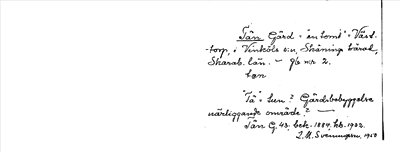 Tån Gård o "en tomt" i Väst-
-torp, i Vinköls s:n, Skånings härad,
Skarab. län. — gb nr 2.
tån
"Tå" i hen? Gårdsbebyggelse
närliggande område? —
Tån G. 43, bek. 1884, kb. 1932.
L. M. Svenungsson, 1950